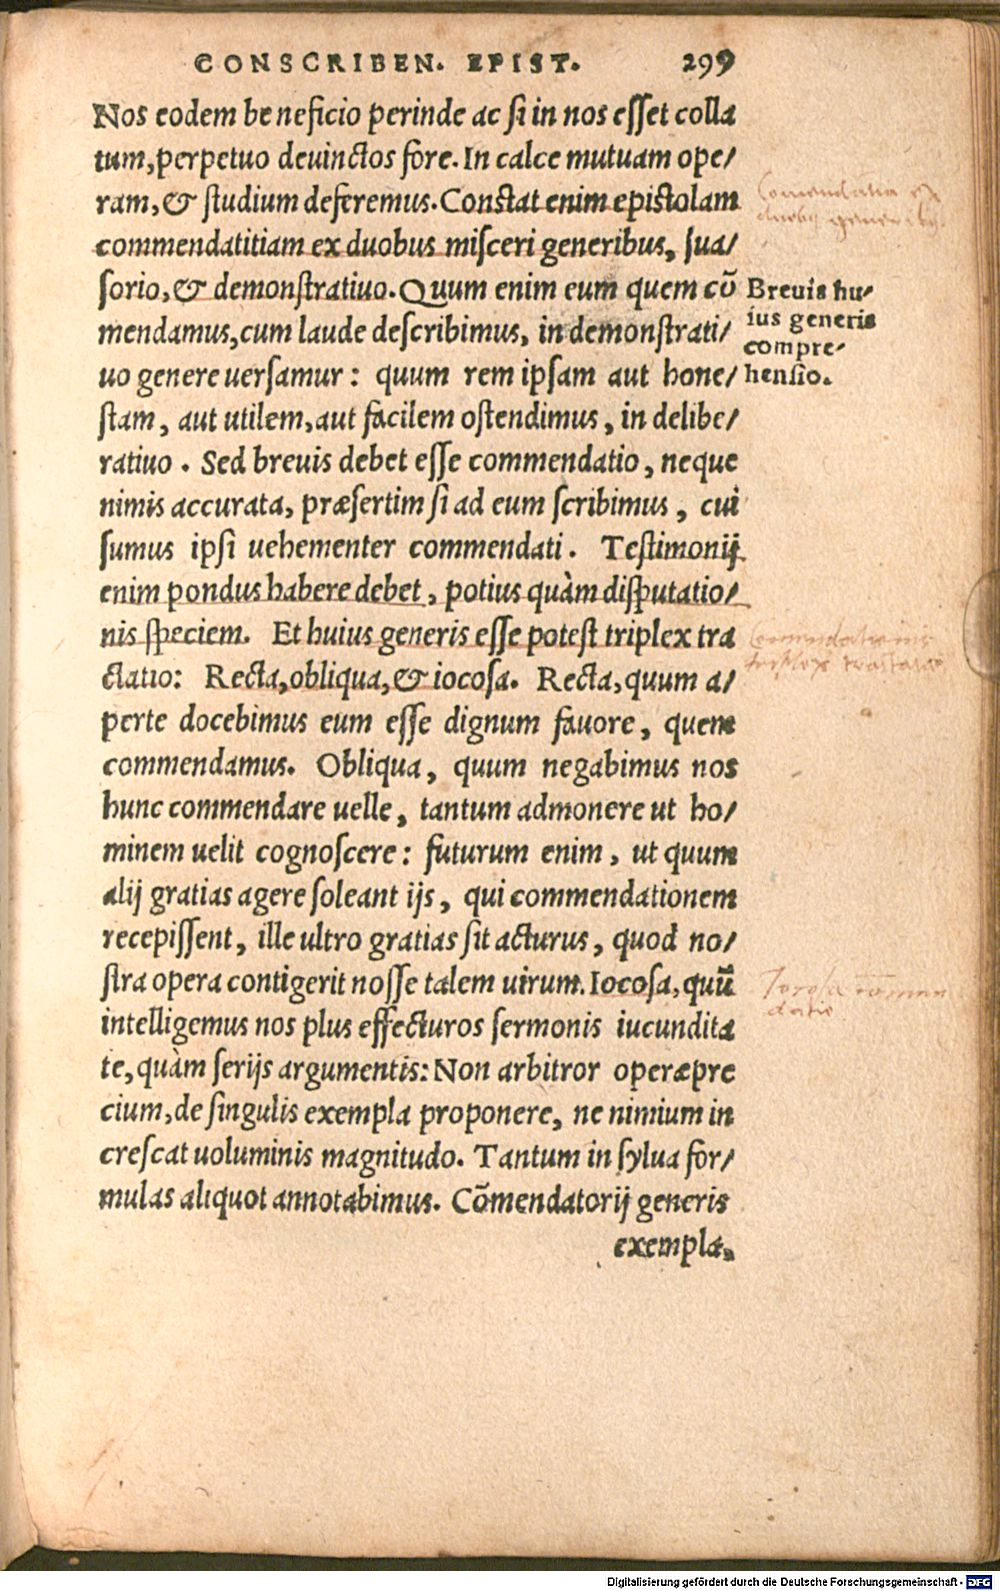 CONSCRIBEN. EPIST. 299
Nos eodem beneficio perinde ac si in nos esset colla
tum, perpetuo deuinctos fore. In calce mutuam ope/
ram, & studium deferemus. Constat enim epistolam
commendatitiam ex duobus misceri generibus, sua/
sorio, & demonstratiuo. Quum enim eum quem cō
mendamus, cum laude describimus, in demonstrati/
uo genere uersamur: quum rem ipsam aut hone/
stam, aut utilem, aut facilem ostendimus, in delibe/
ratiuo. Sed breuis debet esse commendatio, neque
nimis accurata, præsertim si ad eum scribimus, cui
sumus ipsi uehementer commendati. Testimonij
enim pondus habere debet, potius quàm disputatio/
nis speciem. Et huius generis esse potest triplex tra
ctatio: Recta, obliqua, & iocosa. Recta, quum a/
perte docebimus eum esse dignum fauore, quem
commendamus. Obliqua, quum negabimus nos
hunc commendare uelle, tantum admonere ut ho/
minem uelit cognoscere: futurum enim, ut quum
alij gratias agere soleant ijs, qui commendationem
recepissent, ille ultro gratias sit acturus, quod no/
stra opera contigerit nosse talem uirum. Iocosa, quū
intelligemus nos plus effecturos sermonis iucundita
te, quàm serijs argumentis: Non arbitror operæpre
cium, de singulis exempla proponere, ne nimium in
crescat uoluminis magnitudo. Tantum in sylua for/
mulas aliquot annotabimus. Cōmendatorij generis
exempla.
Comendatio ex
duobus generibus
Breuis hu/
ius generis
compre/
hensio.
Commendationis
triplex tractatio
Iocosa commen
datio
Digitalisierung gefördert durch die Deutsche Forschungsgemeinschaft - DFG